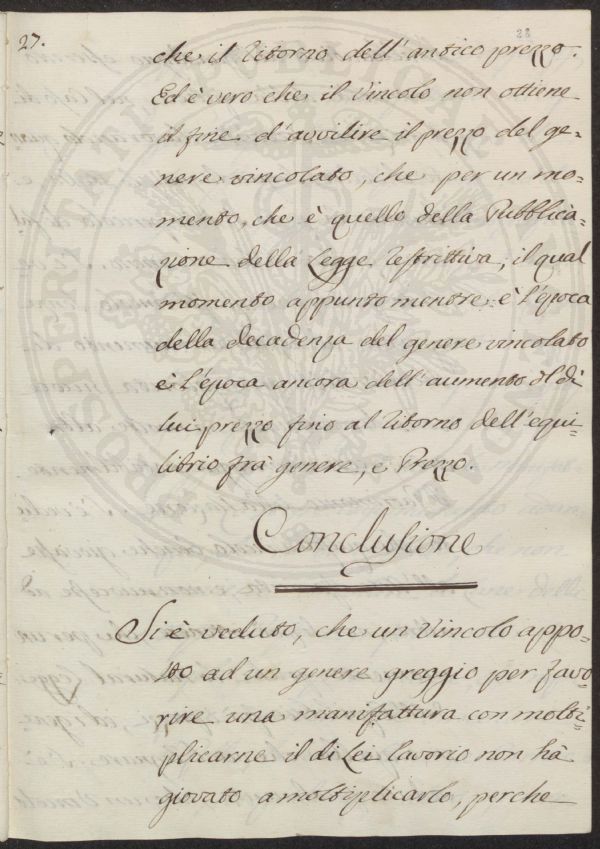 27.
28
che il Ritorno dell' antico prezzo.
Ed è vero che il Vincolo non ottiene
il fine d'avvilire il prezzo del ge=
nere vincolato, che per un mo=
mento, che è quello della Pubblica=
zione della Legge Restrittiva, il qual
momento appunto mentre è l'época
della decadenza del genere vincolato
è l'época ancora dell' aumento del di
lui prezzo fino al Ritorno dell' equi=
librio frà genere, e Prezzo.
Conclusione
Si è veduto, che un Vincolo appo=
sto ad un genere greggio per favo=
rire una manifattura con molti=
plicarne il di Lei lavorio non hà
giovato a moltiplicarlo, perche